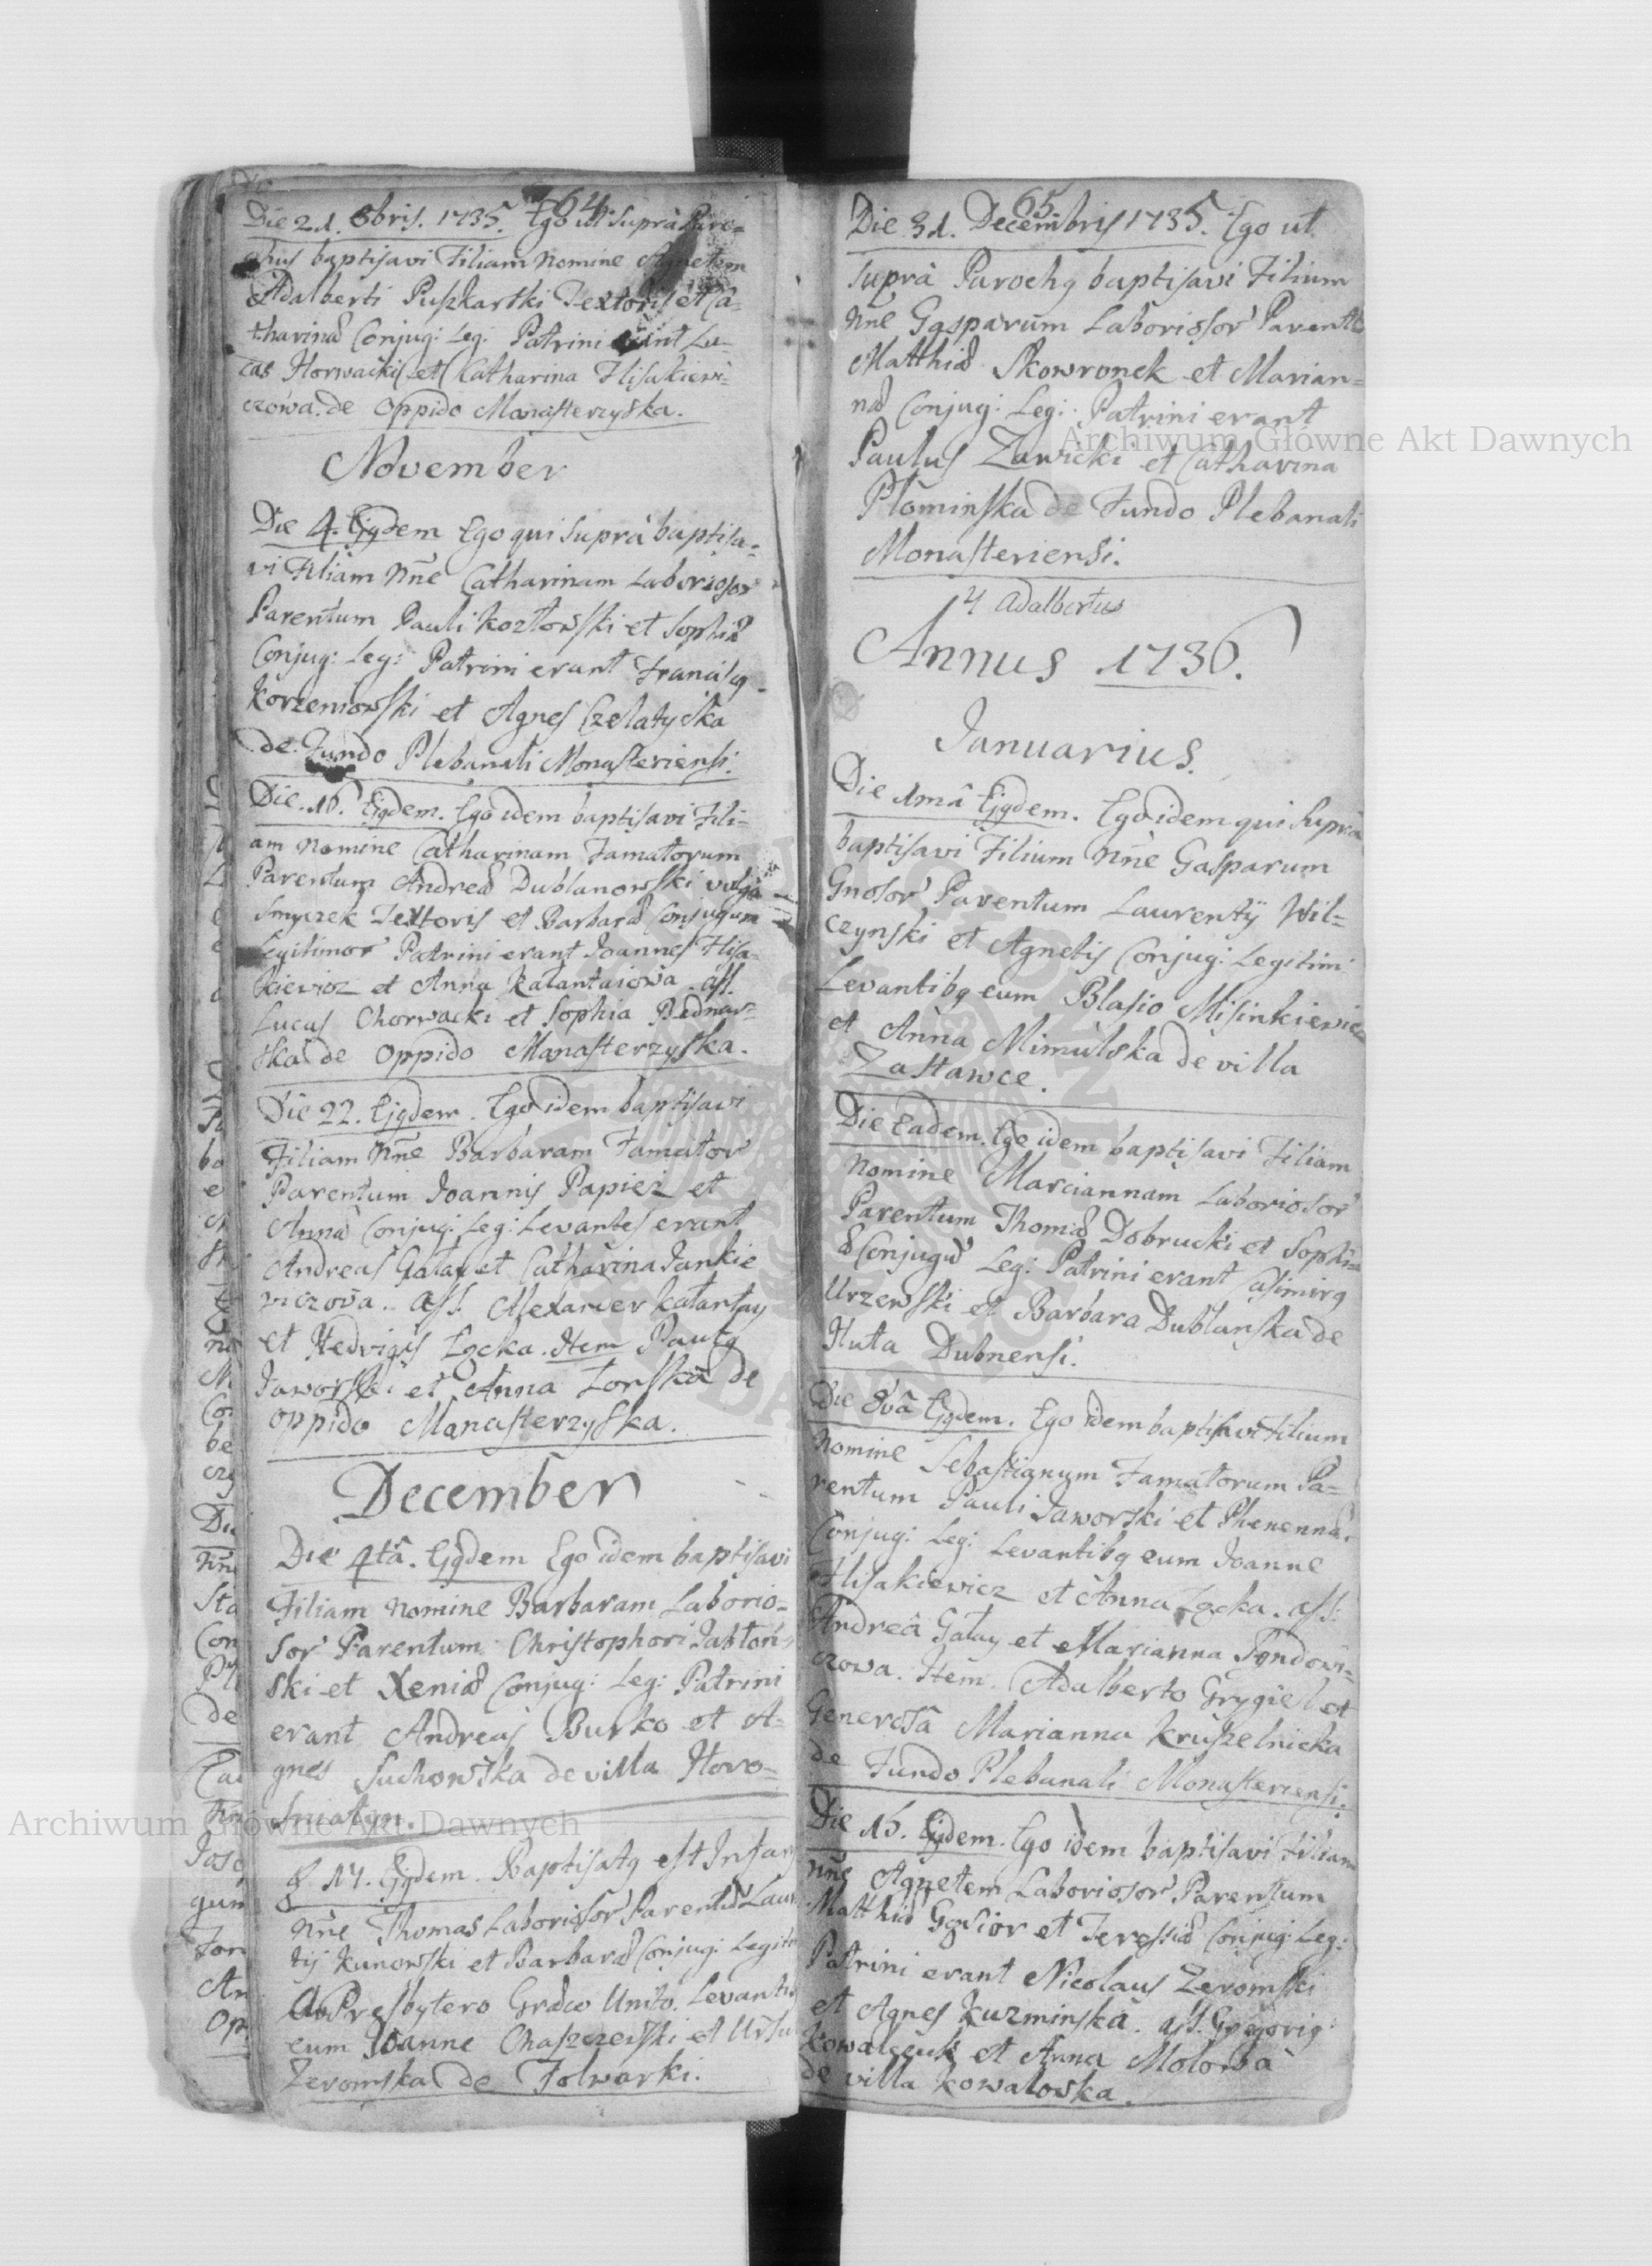 64
Die 21. 8bris. 1735. Ego ut suprà Paro=
chus baptisavi Filiam Nomine Agnetem
Adalberti Puszkarski Textoris et Ca=
tharinæ Conjug: Leg: Patrini erant Lu=
cas Horwacki et Catharina Hlisakiewi=
czowa. de Oppido Monasterzyska.
November
Die 4. Ejgdem Ego qui suprà baptisa=
vi Filiam Nñe Catharinam Laborioſor
Parentum Pauli Kozłowski et Sophiæ
Conjug: Leg: Patrini erant Francisq
Korzeniowski et Agnes Czelatycka
de Fundo Plebanali Monasteriensi.
Die. 16. Ejgdem. Ego idem baptisavi Fili=
am Nomine Catharinam Famatorum
Parentum Andreæ Dublanowski vulgo
Smyczek Textoris et Barbaræ Conjugum
Legitimor Patrini erant Joannes Hlisa=
kiewicz et Anna Kałantaiowa. ass.
Lucas Chorwacki et Sophia Bednar=
ska de Oppido Monasterzyska.
Die 22. Ejgdem. Ego idem baptisavi
Filiam Nñe Barbaram Famator
Parentum Joannis Papież et
Annæ Conjug: Leg: Levantes erant
Andreas Gałay et Catharina Jankie
wiczowa. ass. Alexander Kałantay
et Hedvigis Łącka. Item Paulq
Jaworski et Anna Zorska de
Oppido Monasterzyska.
December
Die 4tâ. Ejgdem Ego idem baptisavi
Filiam Nomine Barbaram Laborio=
sor Parentum Christophori Jabłoń=
ski et Xeniæ Conjug: Leg: Patrini
erant Andreas Burko et A=
gnes Suchowska de villa Howo=
sniatyn.
d. 14. Ejgdem. Baptisatq est Infan
Nñe Thomas Laboriosor Parentū Laur
tij Kunowski et Barbaræ Conjug: Legiti
a Presbytero Græco Unito. Levanti
eum Joanne Chaszczewski et Ursu
Zeromska de Folwarki.
65
Die 31. Decembris 1735. Ego ut
suprà Parochq baptisavi Filium
Nñe Gasparum Laboriosor Parentū
Matthiæ Skowronek et Marian=
næ Conjug: Leg: Patrini erant
Paulus Zawicki et Catharina
Płominska de Fundo Plebanali
Monasteriensi.
4 Adalbertus
Annus 1736.
Januarius.
Die 1mâ Ejgdem. Ego idem qui suprà
baptisavi Filium Nñe Gasparum
Gnosor Parentum Laurentÿ Wil=
czynski et Agnetis Conjug: Legitim
Levantibq eum Blasio Misinkiewicz
et Anna Mimulska de villa
Zastawce.
Die Eadem. Ego idem baptisavi Filiam
Nomine Marciannam Laboriosor
Parentum Thomæ Dobrucki et Sophi
æ Conjugū Leg: Patrini erant Casimirq
Urzewski et Barbara Dublanska de
Huta Dubnensi.
Die 8vâ Ejgdem. Ego idem baptisavi Filium
Nomine Sebastianum Famatorum Pa=
rentum Pauli Jaworski et Phenennæ
Conjug: Leg: Levantibq eum Joanne
Hlisakiewicz et Anna Łącka. ass:
Andreâ Gałay et Marianna Fondowi=
czowa. Item. Adalberto Grygiel et
Generosâ Marianna Kruszelnicka
de Fundo Plebanali Monasteriensi.
Die 15. Ejgdem. Ego idem baptisavi Filiam
Nñe Agnetem Laboriosor Parentum
Matthiæ Gąsior et Teressiæ Conjug: Leg:
Patrini erant Nicolaus Zeromski
et Agnes Kuzminska. ass. Gregoriq
Kowalczuk et Anna
de villa Kowalowka.
Archiwum Główne Akt Dawnych
Archiwum Główne Akt Dawnych